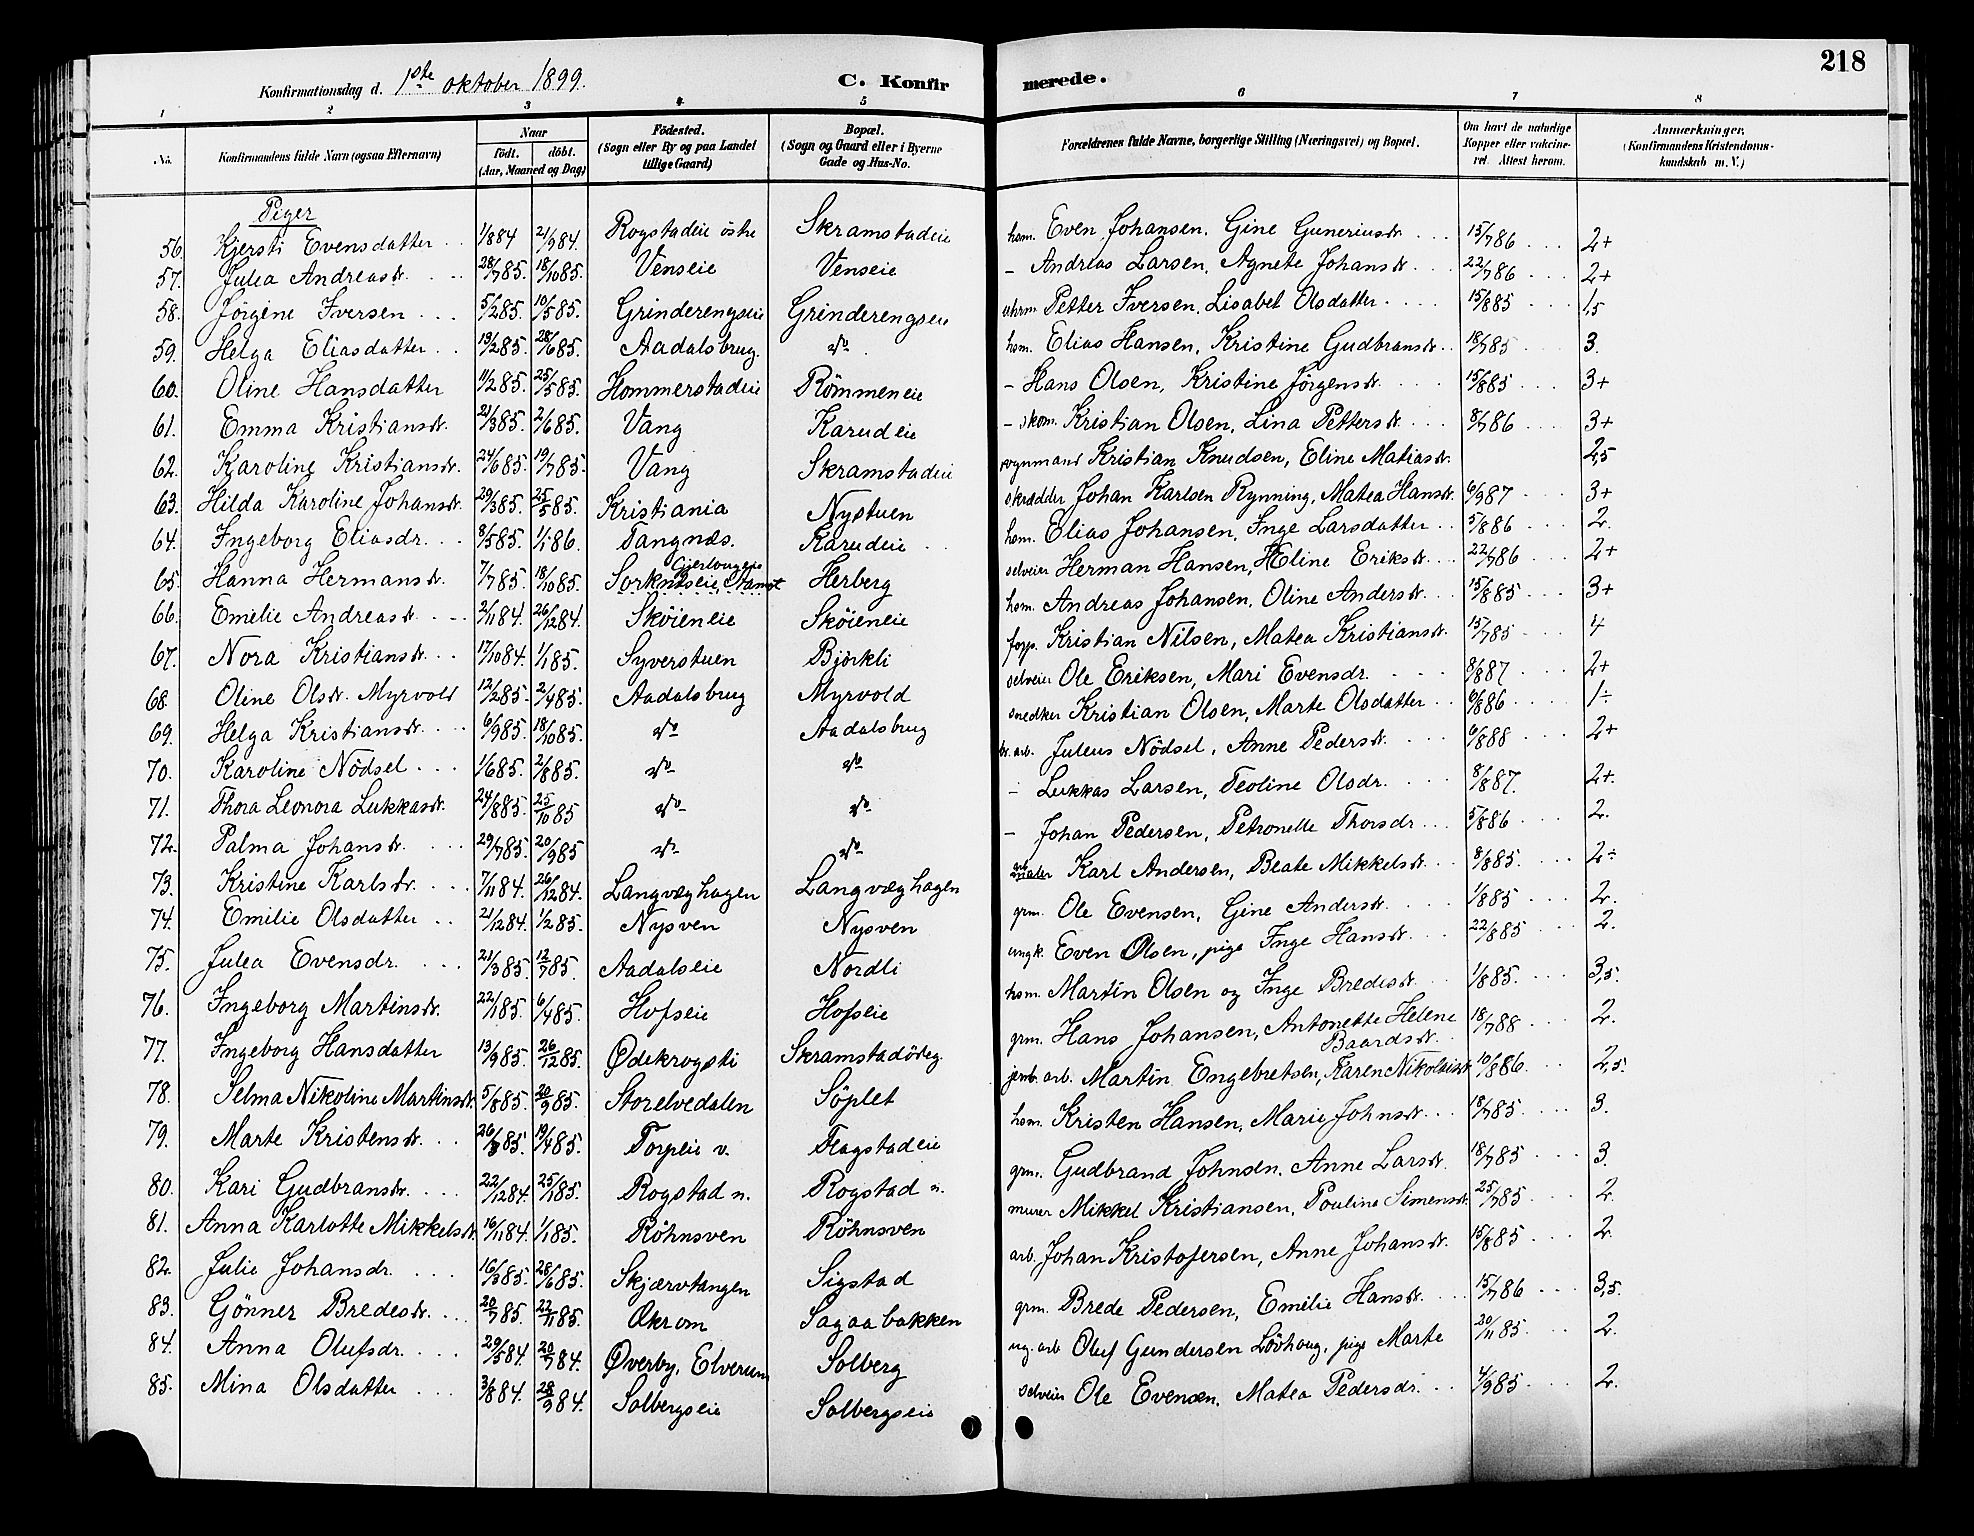 218
Konfirmationsdag d. 1ste oktober 1899. C. Konfirmerede.
1 2 3 4 5 6 7 8
No. Konfirmandens fulde Navn (ogsaa Efternavn) Naar födt. döbt. (Aar, Maaned og Dag) Födested. (Sogn eller By og paa Landet tillige Gaard) Bopæl. (Sogn og Gaard eller i Byerne Gade og Hus-No. Forældrenes fulde Navne, borgerlige Stilling (Næringsvei) og Bopæl. Om havt de naturlige Kopper eller vakcineret. Attest herom. Anmærkninger. (Konfirmandens Kristendomskundskab m. V.)
Piger
56. Kjersti Evensdatter 1/8 84 21/9 84. Rogstadeie östre Skramstadeie hsm. Even Johansen, Gine Guneriusdr. 15/7 86 2+
57. Julia Andreasdr. 28/7 85. 18/10 85. Venseie Venseie - Andreas Larsen, Agnete Johansdr. 22/7 86 2+
58. Jörgine Iversen 5/2 85. 10/5 85. Grinderengseie Grinderengseie Petter Iversen, Lisabet Olsdatter 15/8 85 1,5
59. Helga Eliasdatter 19/2 85. 28/6 85. Aadalsbrug. do hsm. Elias Hansen, Kristine Gudbransdr. 18/7 85 3.
60. Oline Hansdatter 11/2 85. 25/5 85. Hommerstadeie Römmeneie - Hans Olsen, Kristine Jörgensdr. 15/8 85 3+
61. Emma Kristiansdr. 21/3 85. 2/6 85. Vang Karudeie - skom. Kristian Olsen, Lina Pettersdr. 8/7 86 3+
62. Karoline Kristiansdr. 24/6 85. 19/7 85. Vang Skramstadeie Kristian Knudsen, Eline Matiasdr. 2,5
63. Hilda Karoline Johansdr. 29/3 85. 25/5 85. Kristiania Nystuen skrædder Johan Karlsen Rynning, Matea Hansdr. 6/9 87 3+
64. Ingeborg Eliasdr. 8/5 85. 1/1 86. Tangnæs. Karudeie hsm. Elias Johansen, Inge Larsdatter 5/8 86 2.
65. Hanna Hermansdr. 7/7 85. 18/10 85. Sorknæseie, Herberg selveier Herman Hansen, Heline Eriksdr. 22/7 86 2+
66. Emelie Andreasdr. 2/11 84. 26/12 84. Sköieneie Sköieneie hsm. Andreas Johansen, Oline Andersdr. 15/8 85 3+
67. Nora Kristiansdr. 17/10 84. 1/1 85. Syverstuen Björkli forp. Kristian Nilsen, Matea Kristiansdr. 15/7 85 4
68. Oline Olsdr. Myrvold 12/2 85. 2/4 85. Aadalsbrug Myrvold selveier Ole Eriksen, Mari Evensdr. 8/8 87 2+
69. Helga Kristiansdr. 6/9 85. 18/10 85. do Aadalsbrug snedker Kristian Olsen, Marte Olsdatter 6/8 86 1÷
70. Karoline Nödsel 1/6 85. 2/8 85. do do br. arb. Julius Nödsel, Anne Pedersdr. 6/8 88 2+
71. Thora Leonora Lukkasdr. 24/8 85. 25/10 85 do do - Lukkas Larsen, Teoline Olsdr. 8/8 87. 2+.
72. Palma Johansdr. 29/7 85. 20/9 85 do do - Johan Pedersen, Petronelle Thorsdr 5/8 86 2.
73. Kristine Karlsdr. 7/11 84. 26/12 84. Langvæghagen Langvæghagen Karl Andersen, Beate Mikkelsdr. 8/8 85. 2÷
74. Emilie Olsdatter 21/12 84. 1/2 85. Nysven Nysven grm. Ole Evensen, Gine Andersdr. 1/8 85 2.
75. Julia Evensdr. 21/3 85. 12/7 85. Aadalseie Nordli ungk. Even Olsen, pige Inge Hansdr. 22/8 85 2.
76. Ingeborg Martinsdr. 22/1 85. 6/4 85. Hofseie Hofseie hsm. Martin Olsen og Inge Bredesdr. 1/8 85. 3,5.
77. Ingeborg Hansdatter 13/9 85. 26/12 85. Ödekrogsti Skramstadödeg. grm. Hans Johansen, Antonette Helene Baardsdr. 18/7 88 2.
78. Selma Nikoline Martinsdr. 5/8 85. 20/9 85. Storelvedalen Söplet jernb. arb. Martin Engebretsen, Karen Nikolaisdr. 10/8 86. 2,5.
79. Marte Kristensdr. 26/3 85. 19/4 85. Torpeie v. Flagstadeie hsm. Kristen Hansen, Marie Johnsdr. 18/7 85. 3.
80. Kari Gudbransdr. 22/12 84. 25/1 85. Rogstad n. Rogstad n. grm. Gudbrand Johnsen, Anne Larsdr. 18/7 85 3.
81. Anna Karlotte Mikkelsdr. 16/11 84. 1/1 85. Röhnsven Röhnsven murer Mikkel Kristiansen, Pouline Simensdr. 25/7 85 2.
82. Julie Johansdr. 16/3 85. 28/6 85. Skjærvtangen Sigstad arb. Johan Kristofersen, Anne Johansdr. 15/8 85 2.
83. Gönner Bredesdr. 20/7 85. 22/11 85. Økrom Sagaabakken grm. Brede Pedersen, Emilie Hansdr. 15/7 86 3,5.
84. Anna Olufsdr. 29/5 84. 20/7 84. Øverby, Elverum Solberg ug. arb Oluf Gundersen Lövhaug, pige Marte 20/11 85. 2.
85. Mina Olsdatter 3/8 84. 28/9 84. Solbergseie Solbergseie selveier Ole Evensen, Matea Pedersdr. 4/9 85 2.